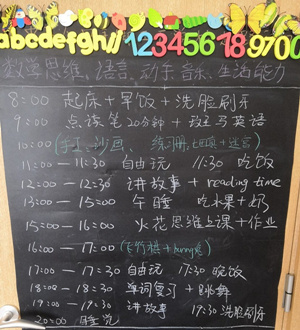 abcdefghij 123456 18 9700
数学思维、语言、动手、音乐、生活能力
8:00 起床+早饭+洗脸刷牙
9:00 点读笔20分钟+斑马英语
10:00 (手工、沙画、练习册、迷宫)
11:00-11:30 自由玩 11:30 吃饭
12:00-12:30 讲故事+reading time
13:00-15:00 午睡 吃水果+奶
15:00-16:00 火花思维上课+作业
16:00-17:00 (飞行棋+
17:00-17:30 自由玩 17:30 晚饭
18:00-18:30 单词复习+跳舞
19:00-19:30 讲故事 19:30 洗脸刷牙
20:00 睡觉